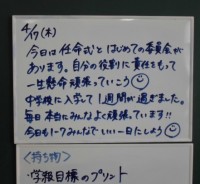 4/17(木)
今日は任命式とはじめての委員会が
あります。自分の役割に責任をもって
一生懸命頑張っていこう
中学校に入学して1週間が過ぎました。
毎日本当にみんなよく頑張っています!!
今日も1-7みんなでいい一日にしよう
〈持ち物〉
・学級目標のプリント